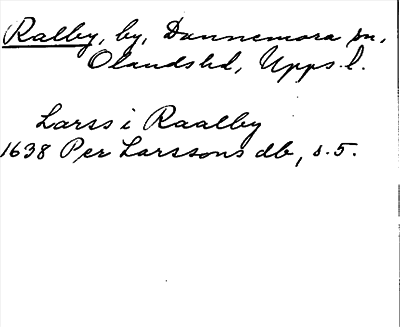 Ralby, by, Dannemora sn,
Olandshd, Upps. l.
Larss i Raalby
1638 Per Larssons db, s. 5.